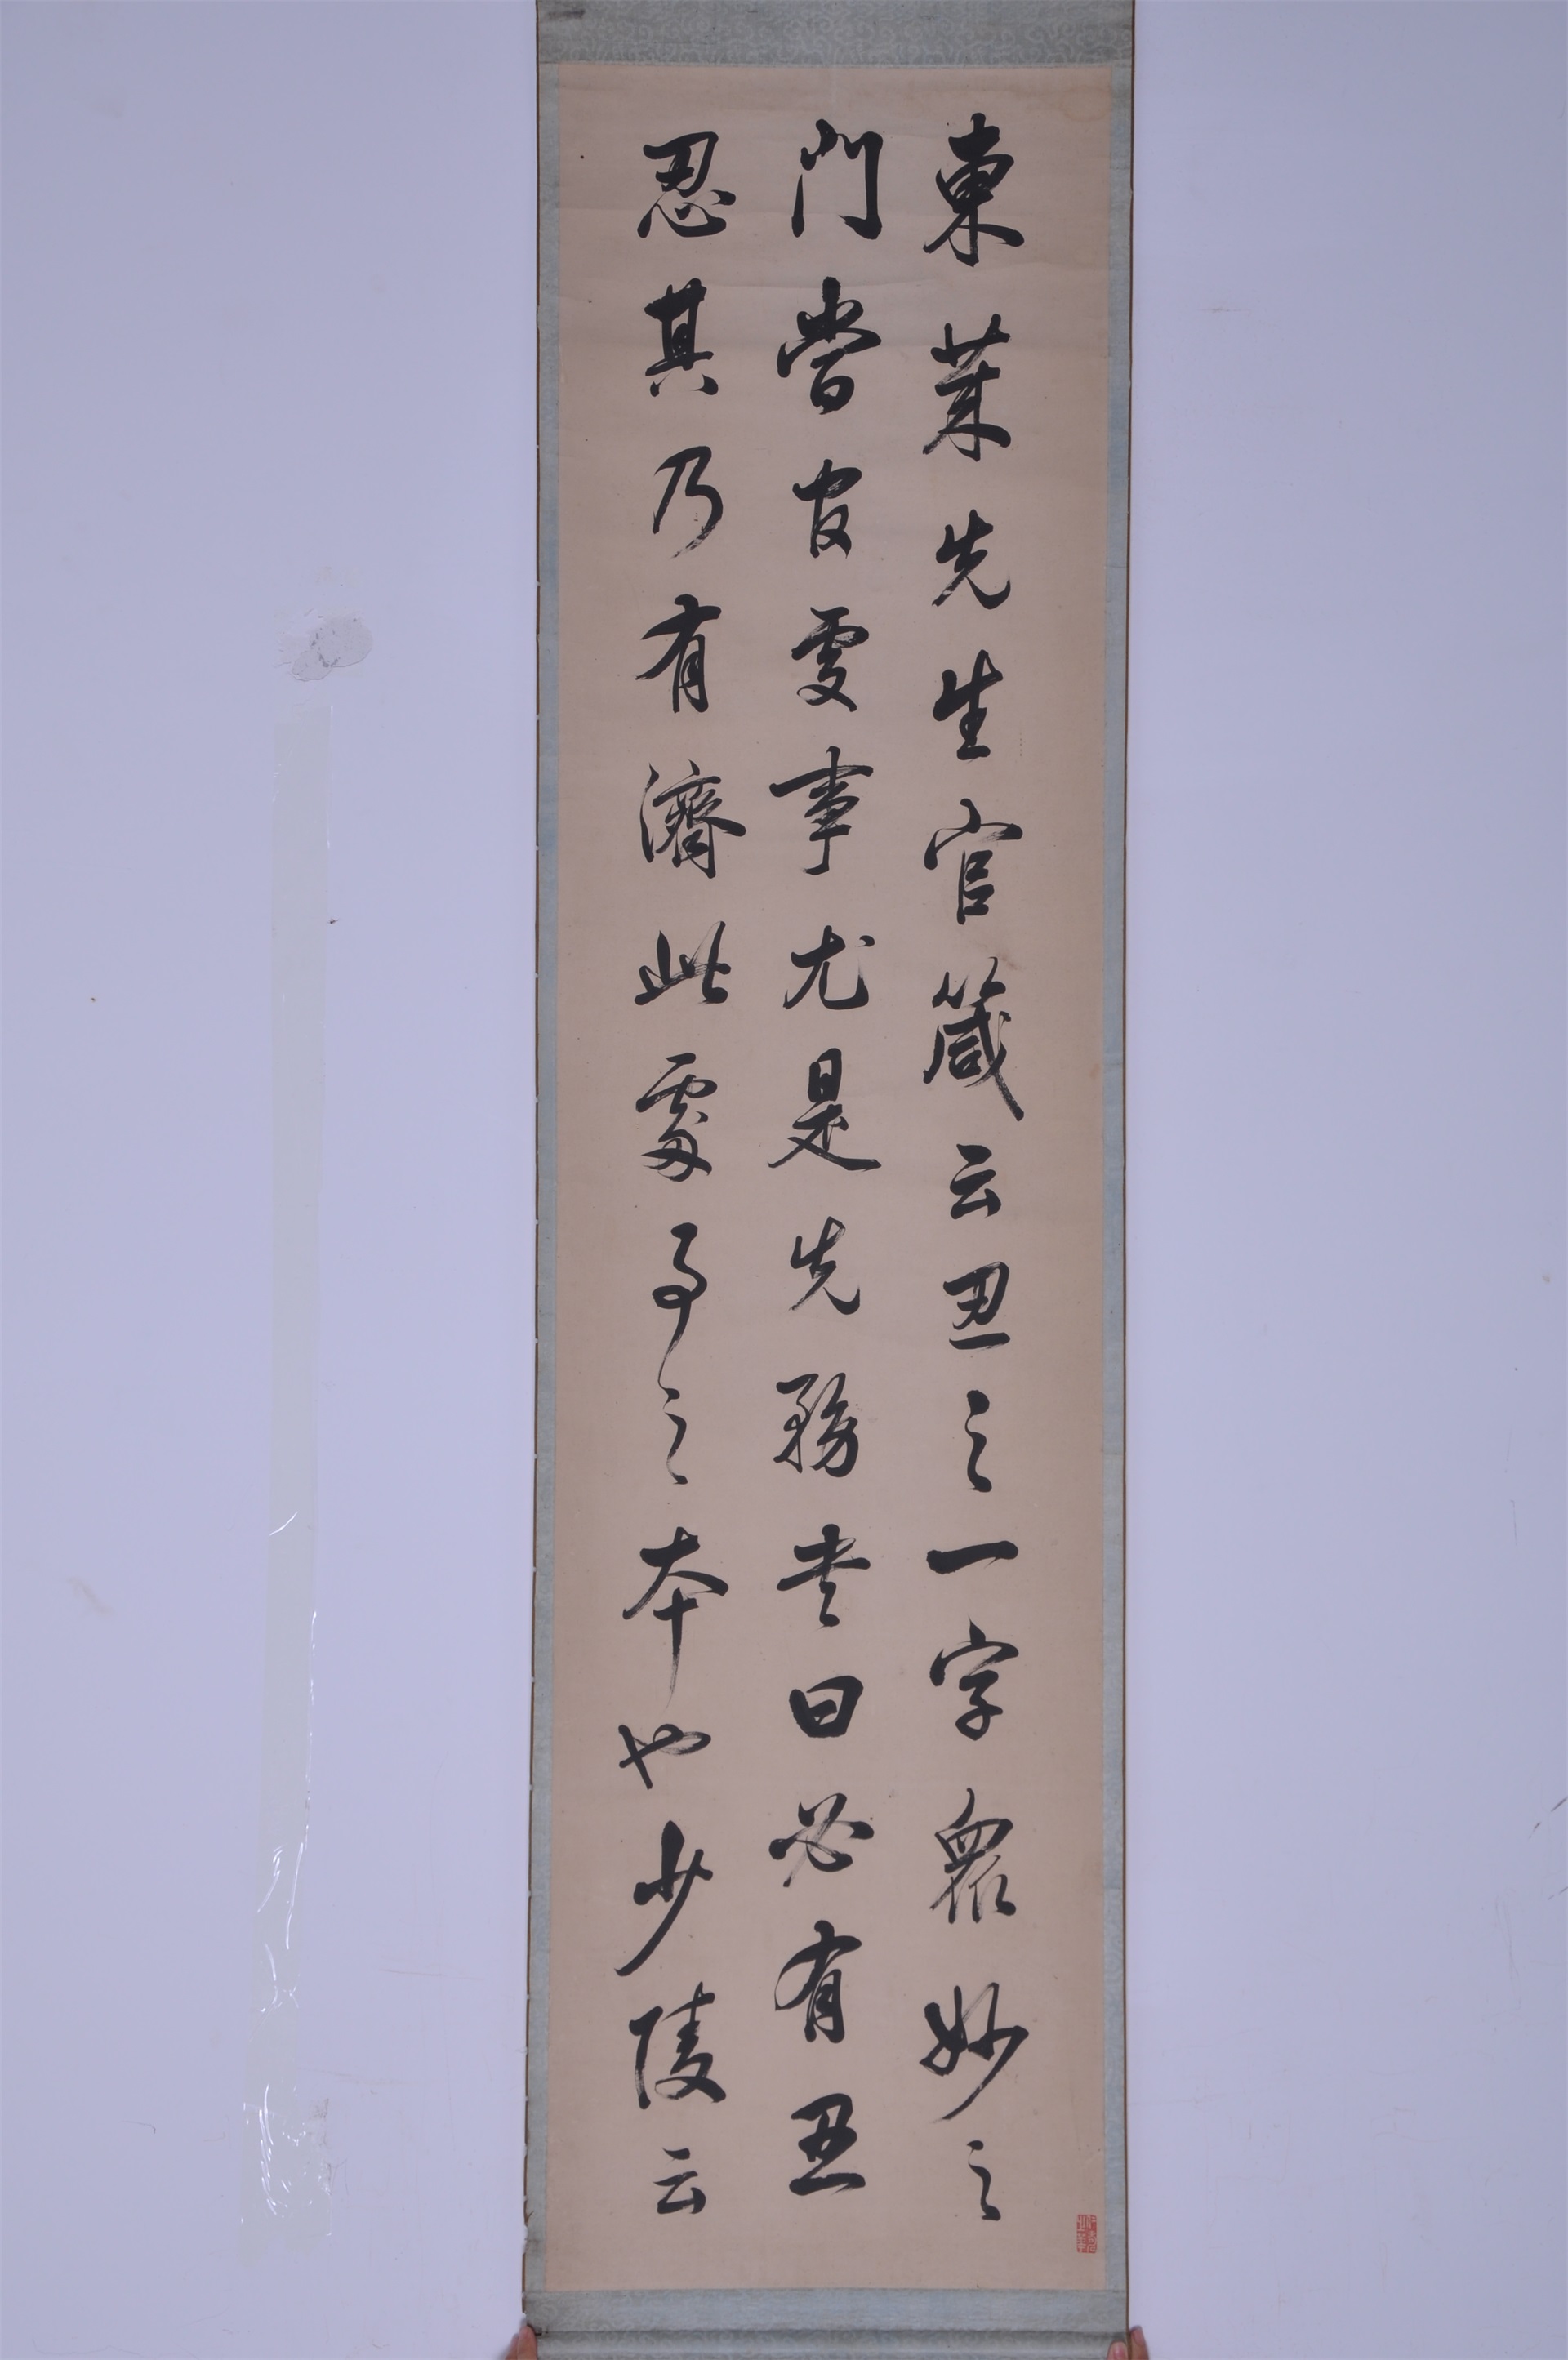 東萊先生官箴云忍之一字眾妙之
門當官處事尤是先務書曰必有忍
忍其乃有濟此處事之本也少陵云